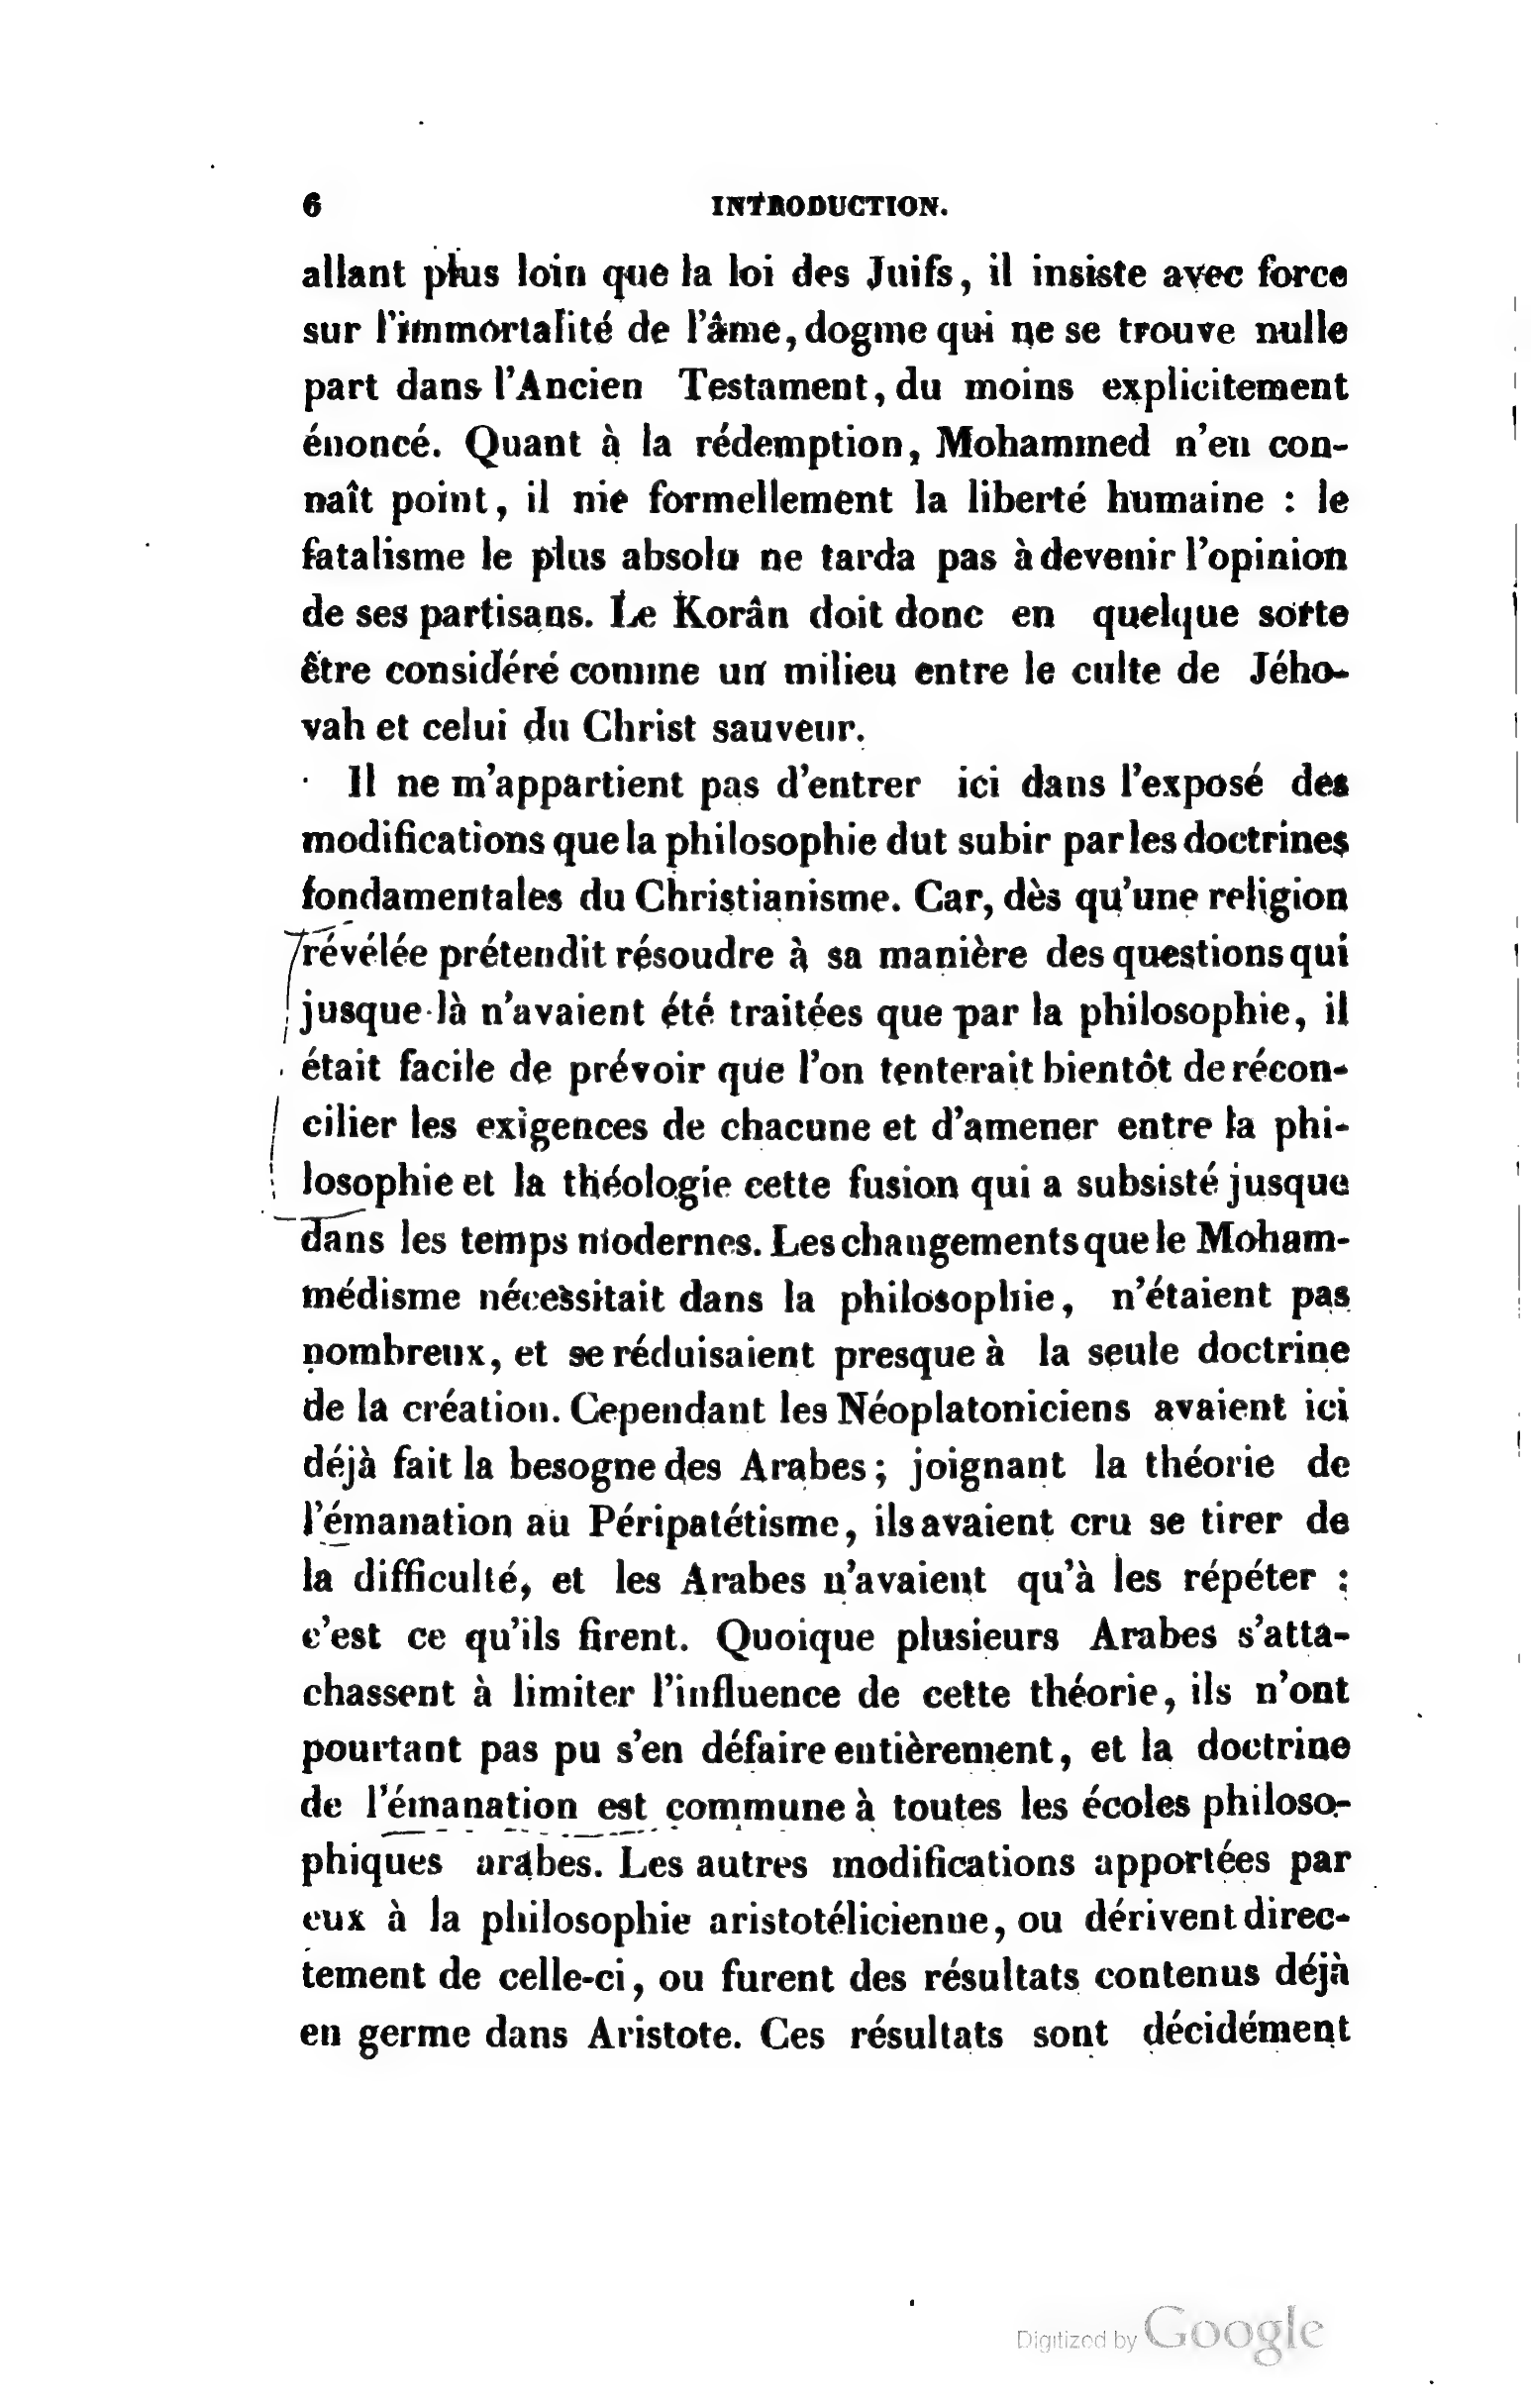 6 INTRODUCTION.
allant plus loin que la loi des Juifs, il insiste avec force
sur l'immortalité de l'âme, dogme qui ne se trouve nulle
part dans l'Ancien Testament, du moins explicitement
énoncé. Quant à la rédemption, Mohammed n'en con-
naît point, il nie formellement la liberté humaine : le
fatalisme le plus absolu ne tarda pas à devenir l'opinion
de ses partisans. Le Korân doit donc en quelque sorte
être considéré comme un milieu entre le culte de Jého-
vah et celui du Christ sauveur.
Il ne m'appartient pas d'entrer ici dans l'exposé des
modifications que la philosophie dut subir par les doctrines
fondamentales du Christianisme. Car, dès qu'une religion
révélée prétendit résoudre à sa manière des questions qui
jusque-là n'avaient été traitées que par la philosophie, il
était facile de prévoir que l'on tenterait bientôt de récon-
cilier les exigences de chacune et d'amener entre la phi-
losophie et la théologie cette fusion qui a subsisté jusque
dans les temps modernes. Les changements que le Moham-
médisme nécessitait dans la philosophie, n'étaient pas
nombreux, et se réduisaient presque à la seule doctrine
de la création. Cependant les Néoplatoniciens avaient ici
déjà fait la besogne des Arabes ; joignant la théorie de
l'émanation au Péripatétisme, ils avaient cru se tirer de
la difficulté, et les Arabes n'avaient qu'à les répéter :
c'est ce qu'ils firent. Quoique plusieurs Arabes s'atta-
chassent à limiter l'influence de cette théorie, ils n'ont
pourtant pas pu s'en défaire entièrement, et la doctrine
de l'émanation est commune à toutes les écoles philoso-
phiques arabes. Les autres modifications apportées par
eux à la philosophie aristotélicienne, ou dérivent direc-
tement de celle-ci, ou furent des résultats contenus déjà
en germe dans Aristote. Ces résultats sont décidément
Digitized by Google